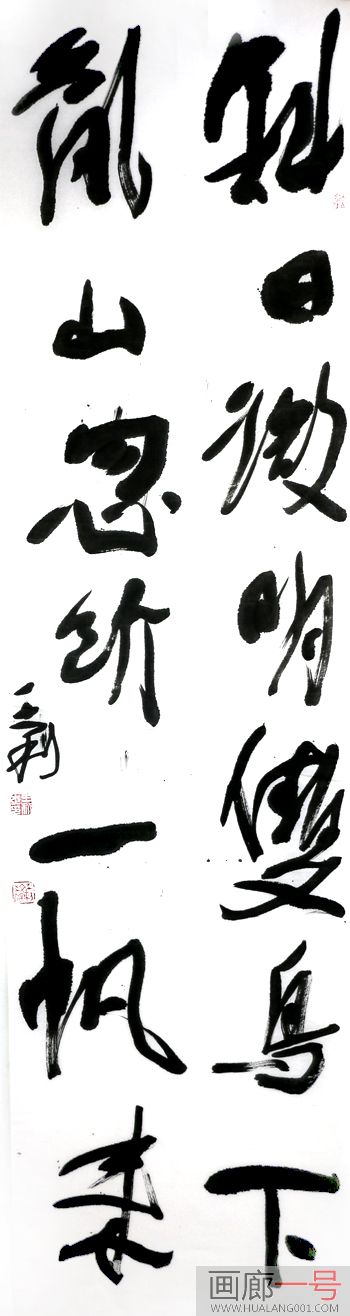 斜日微明雙鳥下
亂山忽斷一帆来
画廊一号
WWW.HUALANG001.COM